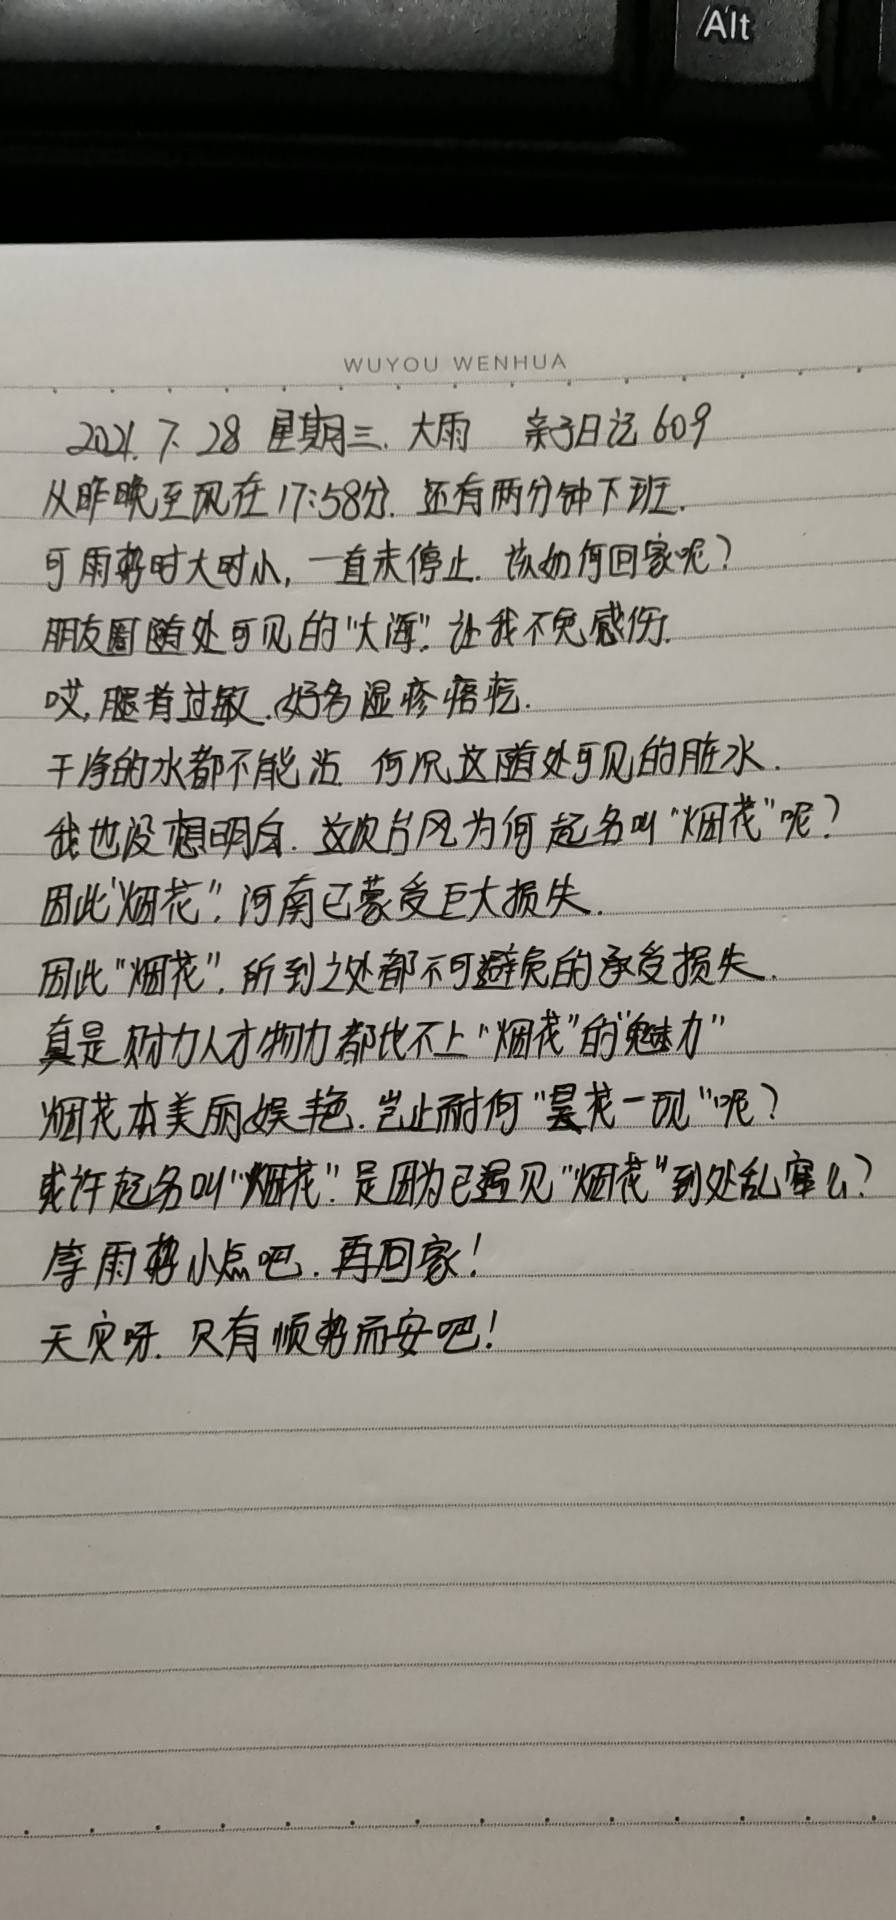 Alt
WUYOU WENHUA
2021.7.28 星期三.大雨 亲子日记609
从昨晚至现在17:58分.还有两分钟下班.
可雨势时大时小,一直未停止.该如何回家呢?
朋友圈随处可见的"大海".让我不免感伤.
哎,腿有过敏.好多湿疹疙瘩.
干净的水都不能沾 何况这随处可见的脏水.
我也没想明白.这次台风为何起名叫"烟花"呢?
因此"烟花".河南已蒙受巨大损失.
因此"烟花".所到之处都不可避免的承受损失.
真是财力人才物力都比不上"烟花"的"魅力"
烟花本美丽娱艳.岂止耐何"昙花一现"呢?
或许起名叫"烟花".是因为已遇见"烟花"到处乱窜么?
等雨势小点吧.再回家!
天灾呀.只有顺势而安吧!